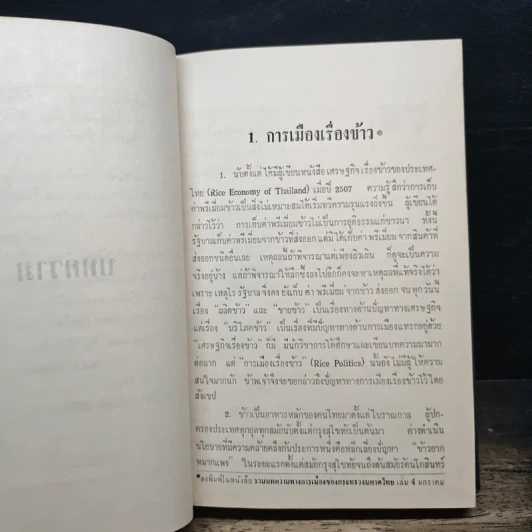 บทความ
1. การเมืองเรื่องข้าว*
1. นับตั้งแต่ได้มีผู้เขียนหนังสือ เศรษฐกิจ เรื่องข้าวของประเทศ-
ไทย (Rice Economy of Thailand) เมื่อปี 2507 ความรู้สึกว่าการเก็บ
ค่าพรีเมี่ยมข้าวเป็นสิ่งไม่เหมาะสมได้เริ่มทวีความรุนแรงยิ่งขึ้น ผู้เขียนได้
กล่าวไว้ว่า การเก็บค่าพรีเมี่ยมข้าวไม่เป็นการยุติธรรมแก่ชาวนา ทั้งนี้
รัฐบาลเก็บค่าพรีเมี่ยมจากข้าวที่ส่งออก แต่มิได้เก็บค่า พรีเมี่ยม จากสินค้าที่
ส่งออกชนิดอื่นเลย เหตุผลนี้ถ้าพิจารณาแต่เพียงผิวเผิน ก็ดูจะเป็นความ
จริงอยู่บ้าง แต่ถ้าพิจารณาให้ลึกซึ้งลงไปอีกก็คงจะหาเหตุผลที่แท้จริงได้ว่า
เพราะ เหตุไร รัฐบาล จึงคง ยังเก็บ ค่า พรีเมี่ยม จากข้าว ส่งออก จน ทุกวันนี้
เรื่อง "ผลิตข้าว" และ "ขายข้าว" เป็นเรื่องทางด้านปัญหาทางเศรษฐกิจ
แต่เรื่อง "บริโภคข้าว" เป็นเรื่องที่มีปัญหาทางด้านการเมืองแทรกอยู่ด้วย
"เศรษฐกิจเรื่องข้าว" ก็มี มีนักวิชาการได้ศึกษาและเขียนบทความมามาก
ต่อมาก แต่ "การเมืองเรื่องข้าว" (Rice Politics) นั้นยังไม่มีผู้ให้ความ
สนใจมากนัก ข้าพเจ้าจึงจะขอกล่าวถึงปัญหาทางการเมืองเรื่องข้าวไว้โดย
สังเขป
2. ข้าวเป็นอาหารหลักของคนไทยมาตั้งแต่ โบราณกาล ผู้ปก-
ครองประเทศทุกยุคทุกสมัยนับตั้งแต่กรุงสุโขทัยเป็นต้นมา ต่างดำเนิน
นโยบายที่มีความคล้ายคลึงกันประการหนึ่งคือหลีกเลี่ยงปัญหา "ข้าวยาก
หมากแพง" ในระยะแรกตั้งแต่สมัยกรุงสุโขทัยจนถึงต้นสมัยรัตนโกสินทร์
*ลงพิมพ์ในหนังสือ รวมบทความทางการเมืองของกระทรวงมหาดไทย เล่ม 4 มกราคม